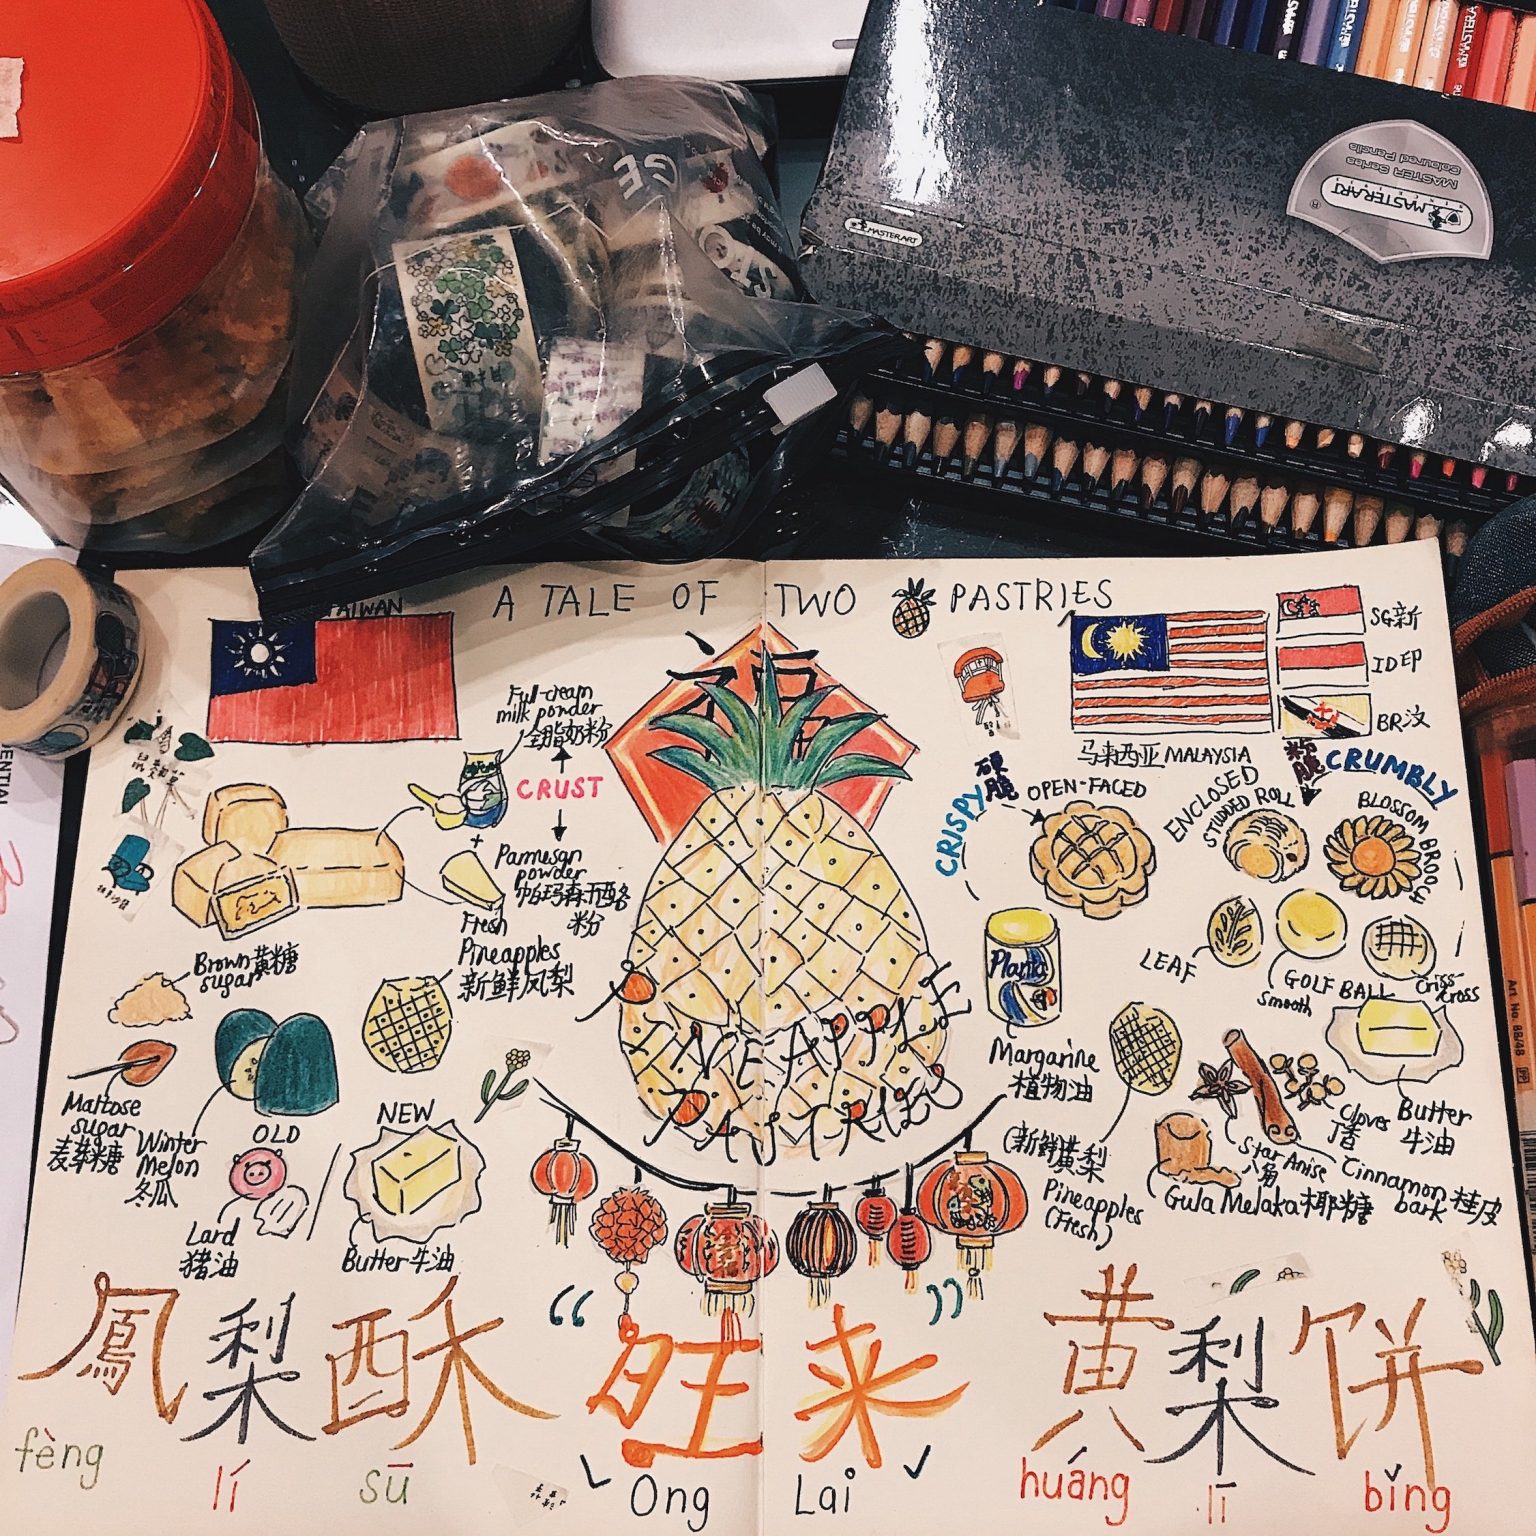 MASTERART
MASTER Series
Coloured Pencils
MASTERART
A TALE OF TWO PASTRIES
TAIWAN
SG新
ID印
BR汶
马来西亚MALAYSIA
福
Full-cream
milk powder
全脂奶粉
CRUST
+
Parmesan
powder
帕玛森干酪
粉
Fresh
Pineapples
新鲜凤梨
Brown黄糖
sugar
Maltose
sugar
麦芽糖
Winter
Melon
冬瓜
OLD
NEW
Lard
猪油
Butter牛油
PINEAPPLE
PASTRIES
CRISPY硬脆
OPEN-FACED
ENCLOSED
STUDDED ROLL
粉脆CRUMBLY
BLOSSOM BROOCH
LEAF
GOLF BALL
Smooth
Criss
Cross
Planta
Margarine
植物油
(新鲜)黄梨
Pineapples
(Fresh)
Star Anise
八角
Cloves
丁香
Butter
牛油
Cinnamon桂皮
bark
Gula Melaka椰糖
鳳梨酥
fèng lí sū
“旺来”
Ong Lai
黄梨饼
huáng lī bǐng